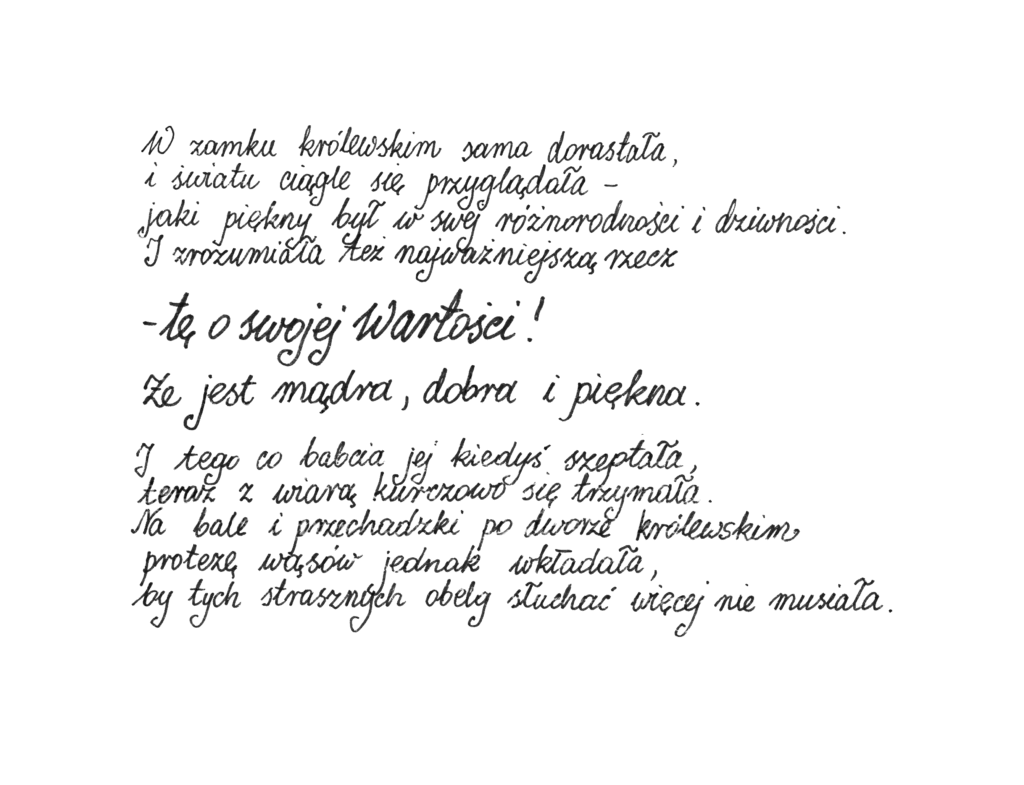 W zamku królewskim sama dorastała,
i światu ciągle się przyglądała –
jaki piękny był w swej różnorodności i dziwności.
I zrozumiała też najważniejszą rzecz
- tę o swojej Wartości!
Że jest mądra, dobra i piękna.
I tego co babcia jej kiedyś szeptała,
teraz z wiarą kurczowo się trzymała.
Na bale i przechadzki po dworze królewskim
protezę wąsów jednak wkładała,
by tych strasznych obelg słuchać więcej nie musiała.